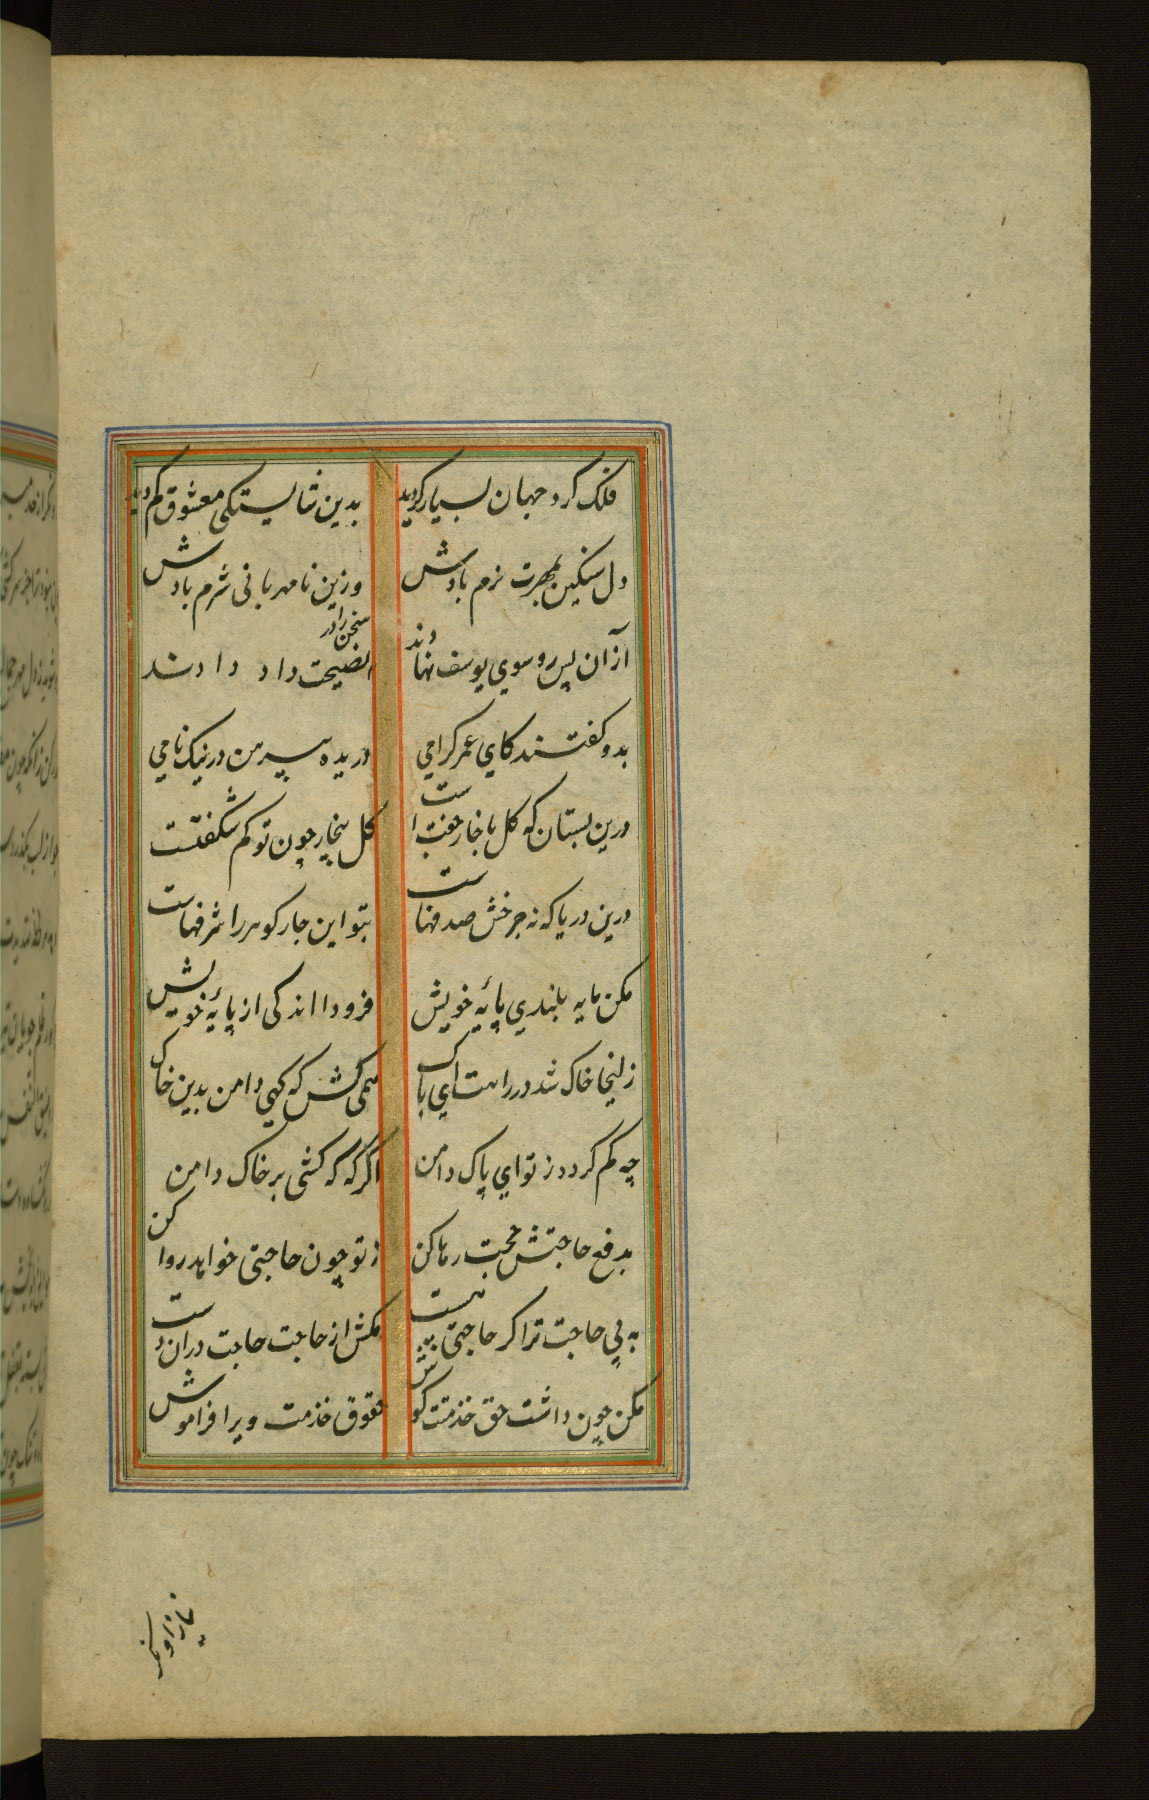 فلک گرد جهان بسیار گردید بدین شایستگی معشوق کم دید
دل سنگین بمهرت نرم بادش وزین نامهربانی شرم بادش
از آن پس رو سوی یوسف نهادند نصیحت داد سخن را در دادند
بدو گفتند کای عمر گرامی دریده پیرهن در نیک نامی
درین بستان که گل با خار جفت است گل بیخار چون تو کم شکفتست
درین دریا که نه چرخش صدفهاست بتو این چار گوهر را شرفهاست
مکن مایه بلندی پایه خویش فرود آ اندکی از پایه خویش
زلیخا خاک شد در راهت ای پاک همی کش گه گهی دامن بدین خاک
چه کم گردد ز تو ای پاک دامن اگر گه گه کشی بر خاک دامن
بدفع حاجتش حجت رها کن ز تو چون حاجتی خواهد روا کن
به بی حاجت ترا گر حاجتی نیست مکش از حاجت حاجت دران دست
مکن چون داشت حق خدمتت گوش حقوق خدمت ویرا فراموش